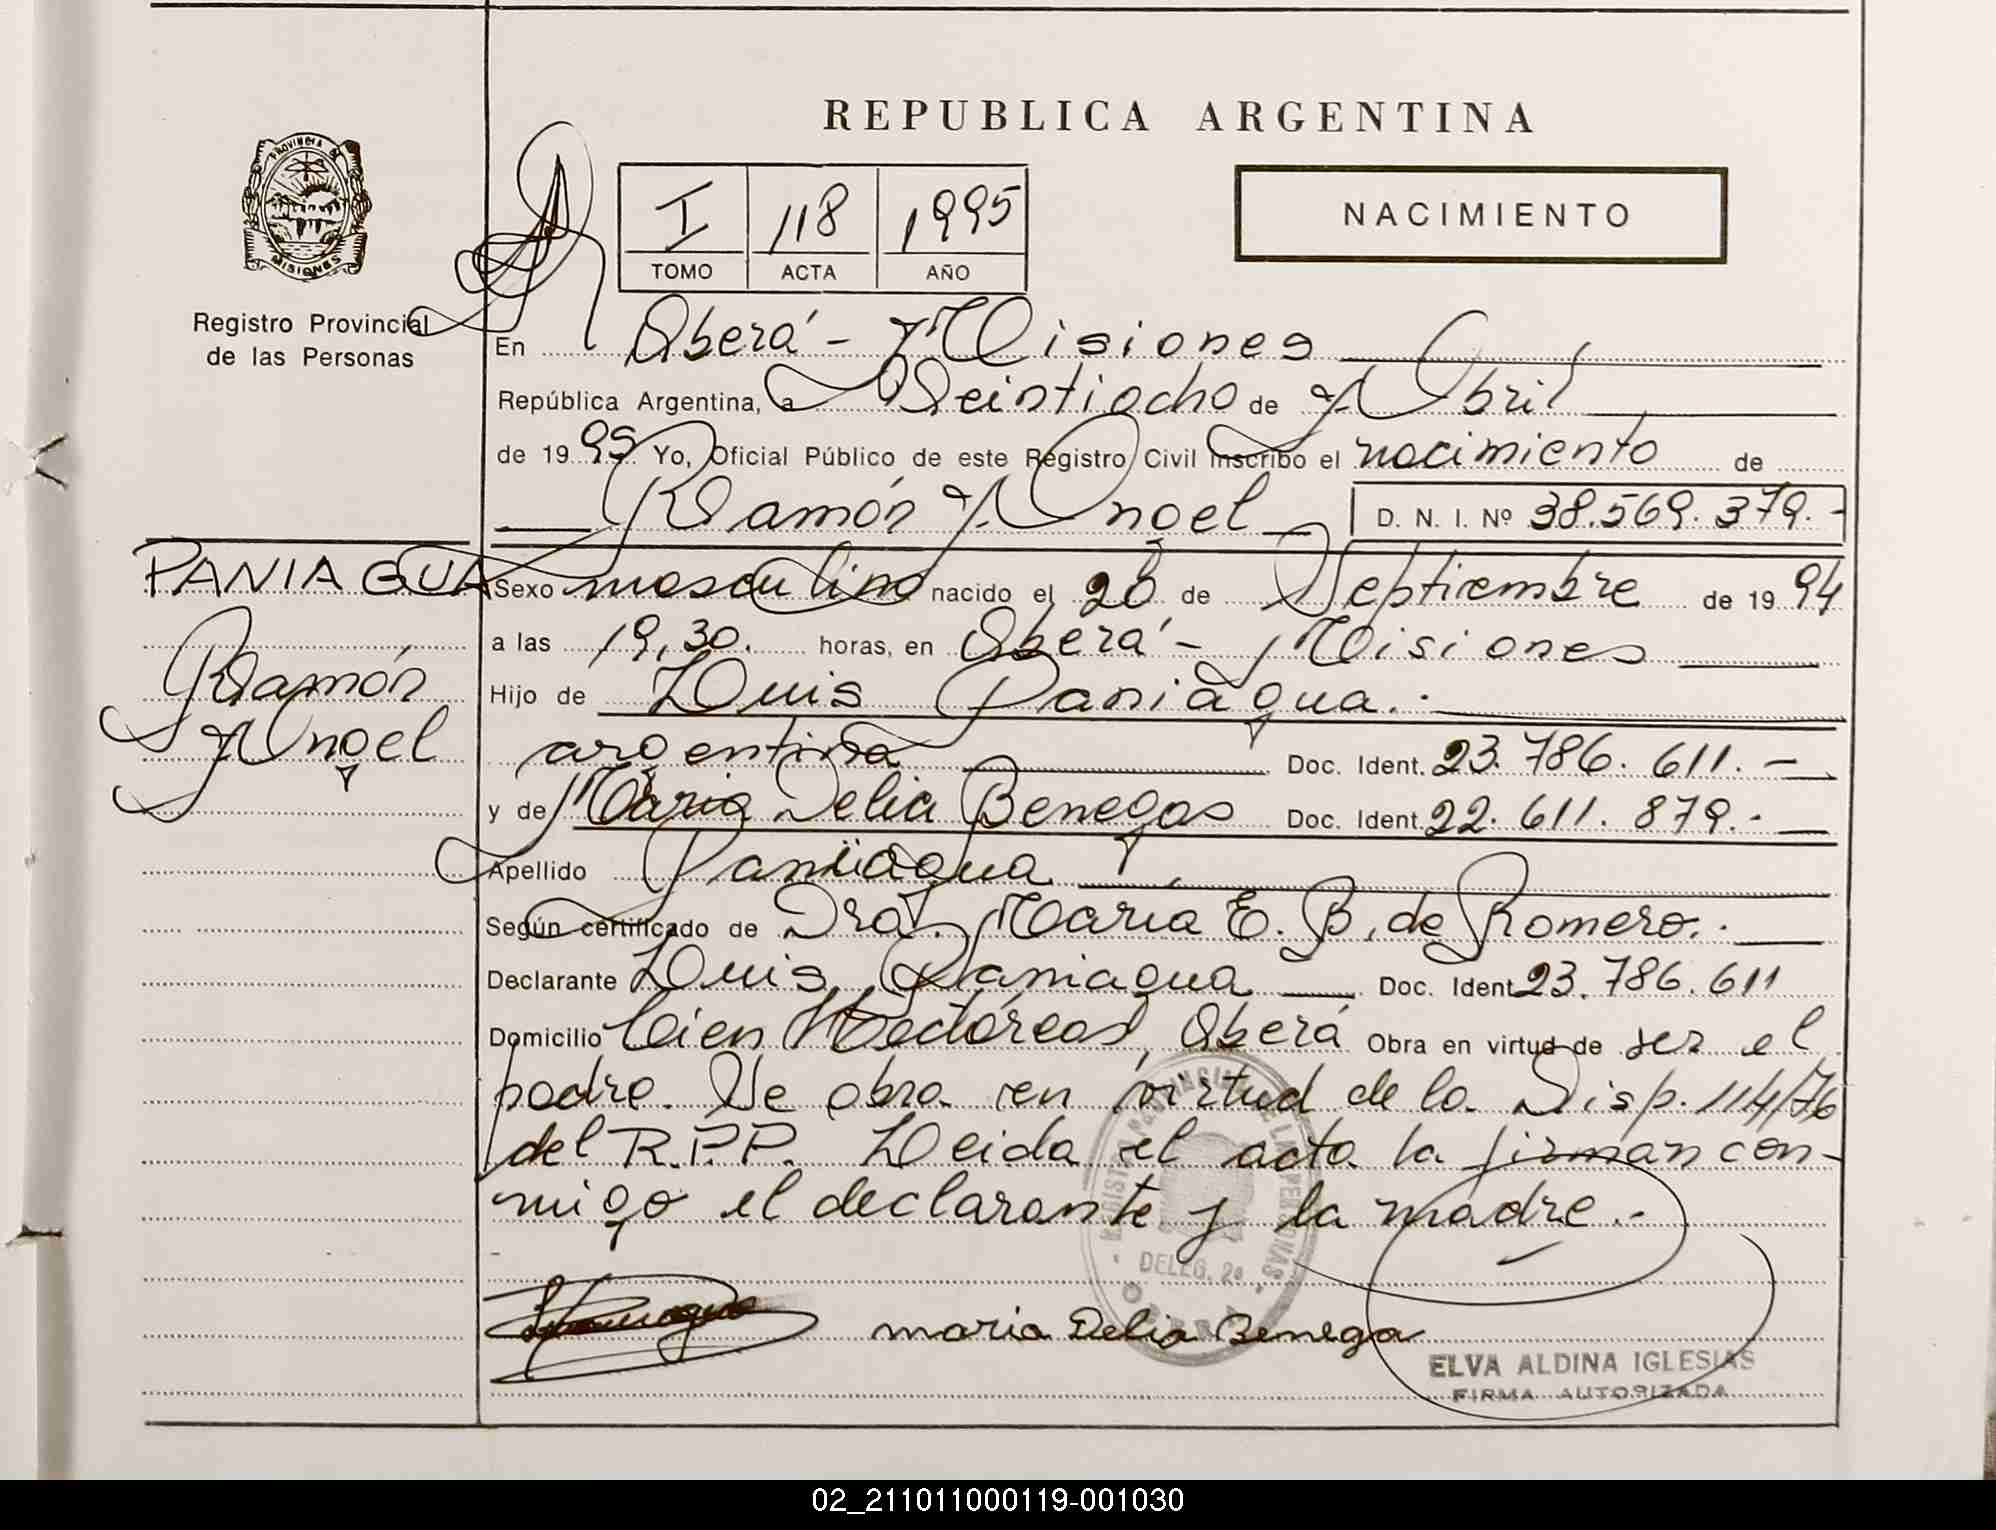 REPUBLICA ARGENTINA
PROVINCIA DE
MISIONES
Registro Provincial
de las Personas
I 118 1995
TOMO ACTA AÑO
NACIMIENTO
En Oberá - Misiones
República Argentina, a Veintiocho de Abril
de 1995 Yo, Oficial Público de este Registro Civil inscribo el nacimiento de
Ramón Angel D. N. I. Nº 38.569.379.-
PANIAGUA
Ramón
Angel
Sexo masculino nacido el 26 de Septiembre de 1994
a las 19,30. horas, en Oberá - Misiones
Hijo de Luis Paniagua.-
argentina Doc. Ident. 23.786.611.-
y de Maria Delia Benegas Doc. Ident. 22.611.879.-
Apellido Paniagua
Según certificado de Dra. Maria E. B. de Romero.-
Declarante Luis Paniagua Doc. Ident. 23.786.611
Domicilio Cien Hectáreas, Oberá Obra en virtud de ser el
padre. Se obra en virtud de la Disp. 114/76
del R.P.P. Leida el acta la firman con-
migo el declarante y la madre.-
DELEG. 2ª
maria Delia Benega
ELVA ALDINA IGLESIAS
FIRMA AUTORIZADA
02_211011000119-001030